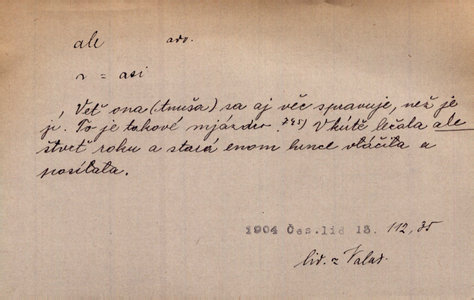 ale adv.
= asi
Veť ona (tnuša) sa aj věc spravuje, než je
ji. To je takové mjázdro. 245) V kútě ležala ale
štvrť roku a stará enom hrnce vláčila a
posílala.
1904 Čes. lid 13. 112, 35
lid. z Valaš.